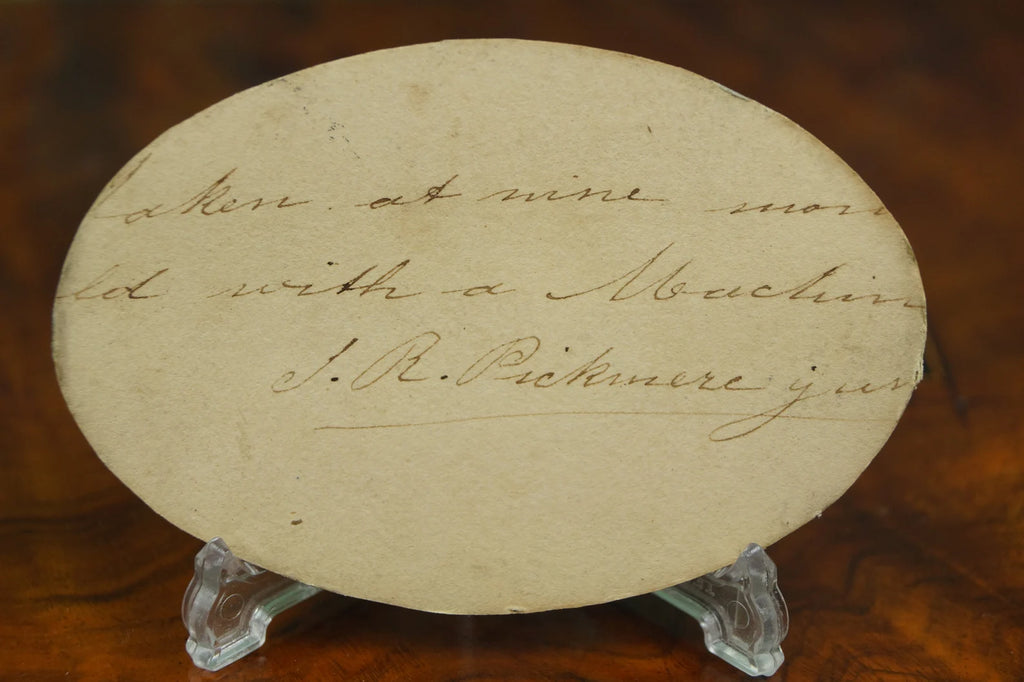 taken at nine mon
ld with a Machin
J. R. Pickmere jun